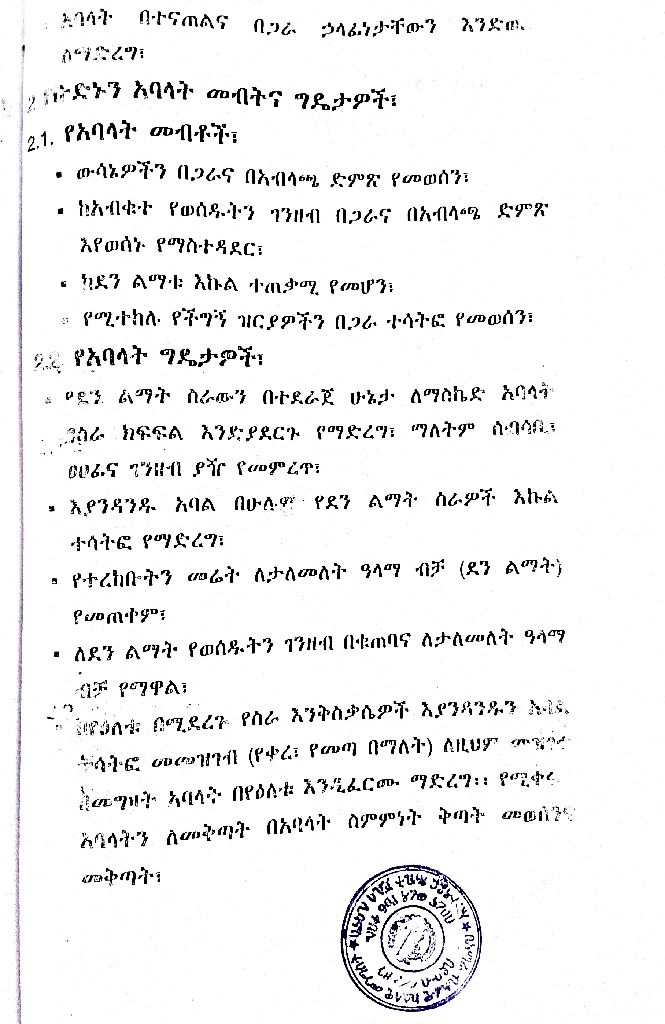 አባላት በተናጠልና በጋራ ኃላፊነታቸውን እንድወ
ለማድረግ፣
2. አባላት መብትና ግዴታዎች፣
2.1. የአባላት መብቶች፣
• ውሳኔዎችን በጋራና በአብላጫ ድምጽ የመወሰን፣
• ከአብቁተ የወሰዱትን ገንዘብ በጋራና በአብላጫ ድምጽ
እየወሰኑ የማስተዳደር፣
• ከደን ልማቱ እኩል ተጠቃሚ የመሆን፣
• የሚተከሉ የችግኝ ዝርያዎችን በጋራ ተሳትፎ የመወሰን፣
2.2. የአባላት ግዴታዎች፣
• የደን ልማት ስራውን በተደራጀ ሁኔታ ለማስኬድ አባላት
ስራ ክፍፍል እንድያደርጉ የማድረግ፣ ማለትም ሰብሳቢ፣
ፀሀፊና ገንዘብ ያዥ የመምረጥ፣
• እያንዳንዱ አባል በሁሉም የደን ልማት ስራዎች እኩል
ተሳትፎ የማድረግ፣
• የተረከቡትን መሬት ለታለመለት ዓላማ ብቻ (ደን ልማት)
የመጠቀም፣
• ለደን ልማት የወሰዱትን ገንዘብ በቁጠባና ለታለመለት ዓላማ
ብቻ የማዋል፣
በየዕለቱ በሚደረጉ የስራ እንቅስቃሴዎች እያንዳንዱን
ተሳትፎ መመዝገብ (የቀረ፣ የመጣ በማለት) ለዚህም
አባላት በየዕለቱ እንዲፈርሙ ማድረግ፡፡ የሚቀሩ
አባላትን ለመቅጣት በአባላት ስምምነት ቅጣት መወሰንና
መቅጣት፣